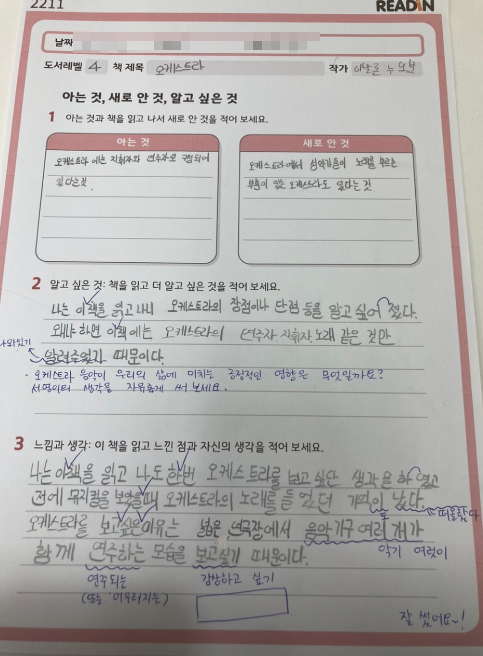 2211
READIN
날짜
도서레벨 4 책 제목 오케스트라 작가
아는 것, 새로 안 것, 알고 싶은 것
1 아는 것과 책을 읽고 나서 새로 안 것을 적어 보세요.
아는 것
오케스트라에는 지휘자와 연주자로 구성되어
있다는것.
새로 안 것
오케스트라에서 성악가들이 노래를 부르는
부분이 있는 오케스트라도 있다는 것
2 알고 싶은 것: 책을 읽고 더 알고 싶은 것을 적어 보세요.
나는 이책을 읽고나니 오케스트라의 장점이나 단점 등을 알고 싶어 졌다.
왜냐 하면 이책에는 오케스트라의 연주자 지휘자, 노래 같은 것만
나와있기
알려주었기 때문이다.
· 오케스트라 음악이 우리의 삶에 미치는 긍정적인 영향은 무엇일까요?
생각을 자유롭게 써 보세요.
3 느낌과 생각: 이 책을 읽고 느낀 점과 자신의 생각을 적어 보세요.
나는 이책을 읽고 나도 한번 오케스트라를 보고 싶단 생각을 하였고
전에 뮤지컬을 보았을때 오케스트라의 노래를 들었던 기억이 났다
떠올랐다
오케스트라를 보고싶은이유는 넓은 연극장에서 음악기구 여러 개가
악기 여럿이
함께 연주하는 모습을 보고싶기 때문이다.
연주되는 감상하고 싶기
(또는 어우러지는)
잘 썼어요~!